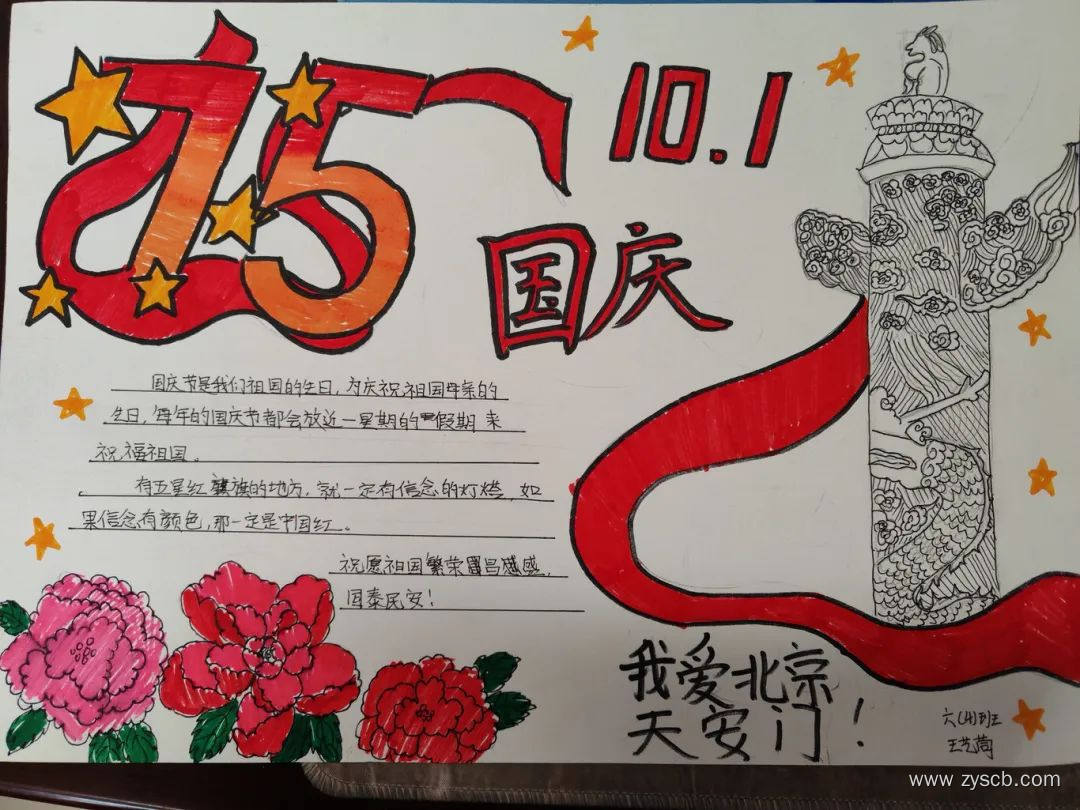 75
10.1
国庆
国庆节是我们祖国的生日,为庆祝祖国母亲的
生日,每年的国庆节都会放近一星期的假期来
祝福祖国。
有五星红旗的地方,就一定有信念的灯塔,如
果信念有颜色,那一定是中国红。
祝愿祖国繁荣昌盛,
国泰民安!
我爱北京
天安门!
六(4)班
王艺
www.zyscb.com